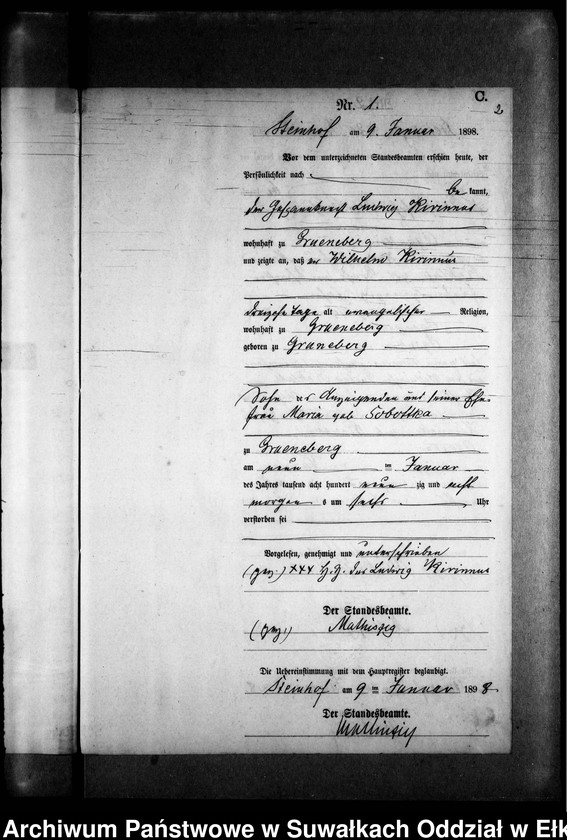 C.
2
Nr. 1.
Steinhof am 9. Januar 1898.
Vor dem unterzeichneten Standesbeamten erschien heute, der
Persönlichkeit nach
be kannt,
der Gespannknecht Ludwig Kirinnus
wohnhaft zu Grueneberg
und zeigte an, daß der Wilhelm Kirinnus
dreizehn Tage alt evangelischer Religion,
wohnhaft zu Grueneberg
geboren zu Grueneberg
Sohn des Anzeigenden und seiner Ehe-
frau Maria geb Sobottka
zu Grueneberg
am neun ten Januar
des Jahres tausend acht hundert neun zig und acht
morgen s um sechs Uhr
verstorben sei
Vorgelesen, genehmigt und unterschrieben
(gez.) XXX H.Z. des Ludwig Kirinnus
Der Standesbeamte.
(gez.) Mathiszig
Die Uebereinstimmung mit dem Hauptregister beglaubigt.
Steinhof am 9 ten Januar 1898
Der Standesbeamte.
Mathiszig
Archiwum Państwowe w Suwałkach Oddział w Ełk